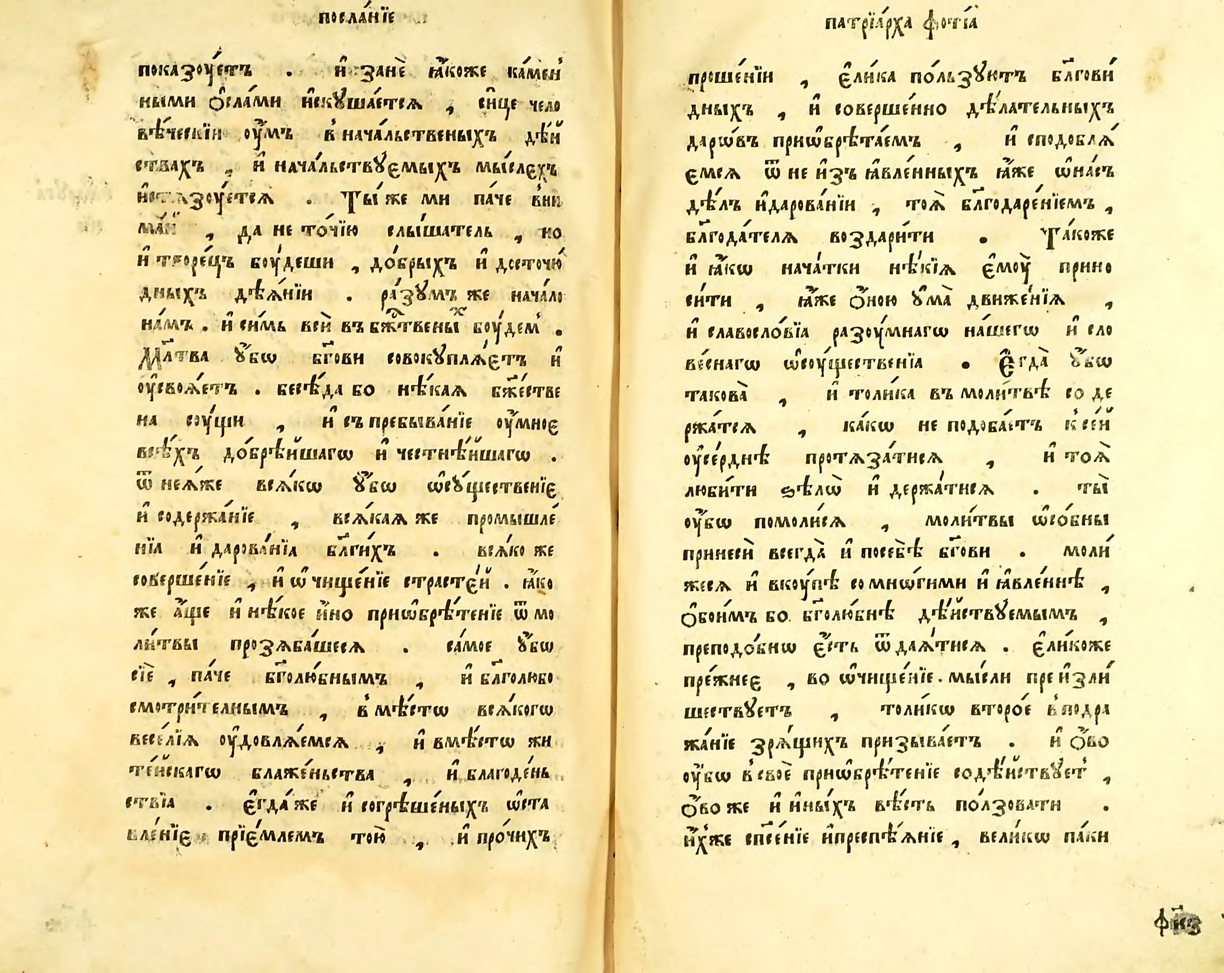 посла́нїе
показоуе́тъ . и҆ занѐ ꙗ҆́коже ка́мен
ными ѻ҆сла́ми и҆скꙋша́ется , си́це чело
вѣ́ческїи оу҆́мъ в нача́льственыхъ дѣ́й
ствахъ , и҆ нача́льствꙋемыхъ мы́слехъ
и҆стѧзоуе́тсѧ . Ты́ же ми па́че вни
ма́й , да не то́чїю слы́шатель , но
и҆ творе́цъ боу́деши , до́брыхъ и҆ досточю́
дныхъ дѣѧ́нїи . ра́зꙋмъ же нача́ло
на́мъ . и҆ си́мь всѝ въ бж҃твены́ⷯ боу́демъ .
Мл҃тва ᲂу҆́бѡ бг҃ови совокꙋплѧ́етъ и҆
оу҆своѧ́етъ . бесѣ́да бо нѣ́каѧ бж҃е́стве
на соу́щи , и҆ съпребыва́нїе оу҆́мное
всѣ́хъ добрѣ́йшагѡ и҆ честнѣ́йшагѡ .
ѿ неѧ́же всѧ́кѡ ᲂу҆́бѡ ѡ҆сꙋ́щественїе
и҆ содержа́нїе , всѧ́каѧ же промышле́
нїѧ и҆ дарова́нїѧ бл҃ги́хъ . всѧ́ко же
соверше́нїе , и҆ ѡ҆чище́нїе страсте́й . ꙗ҆́ко
же а҆́ще и҆ нѣ́кое и҆́но приѡбрѣ́тенїе ѿ мо
ли́твы прозѧба́шесѧ . са́мое ᲂу҆́бѡ
сїѐ , па́че бг҃олю́бнымъ , и҆ бл҃голюбо
смотри́телнымъ , в мѣ́стѡ всѧ́кого
весе́лїѧ оу҆довлѧ́емсѧ , и҆ вмѣ́стѡ жи
те́йскагѡ блаже́ньства , и҆ благоде́нь
ствїа . є҆гда́ же и҆ согрѣше́ныхъ ѡ҆ста
вле́нїе прїе́млемъ то́ю , и҆ про́чихъ
патрїа́рха фо́тїа
проше́нїи , є҆ли́ка по́льзуютъ бл҃гови́
дныхъ , и҆ соверше́нно дѣ́лательныхъ
даро́въ приѡбрѣта́емъ , и҆ сподоблѧ́
емсѧ ѿ не и҆зъ ꙗ҆вле́нныхъ ꙗ҆́же ѡ҆на́съ
дѣ́лъ и҆дарова́нїи , то́ѧ бл҃годаре́нїемъ ,
бл҃года́телѧ воздари́ти . Та́коже
и҆ ꙗ҆́кѡ нача́тки нѣ́кїѧ є҆моу̀ прино
си́ти , ꙗ҆́же ѻ҆́ною ᲂу҆ма̀ движе́нїѧ ,
и҆ славосло́вїа разоу́мнагѡ на́шегѡ и҆ сло
ве́снагѡ ѡ҆соу́щественїа . Є҆гда̀ ᲂу҆́бѡ
такова̀ , и҆ толи́ка въ моли́твѣ соде
ржа́тсѧ , ка́кѡ не подоба́етъ к се́й
оу҆се́рднѣ протѧза́тисѧ , и҆ то́ѧ
люби́ти ѕѣлѡ̀ и҆ держа́тисѧ . ты̀
оу҆́бѡ помоли́сѧ , моли́твы ѡ҆со́бны
принесѝ всегда̀ и҆ посебѣ̀ бг҃ови . моли́
жесѧ и҆ вкоу́пѣ со мнѡ́гими и҆ ꙗ҆вле́ннѣ ,
ѻ҆бои́мъ бо бг҃олю́бнѣ дѣ́йствꙋемымъ ,
преподо́бнѡ є҆́сть ѿдаѧ́тисѧ . є҆ли́коже
пре́жнее , во ѡ҆чище́нїе мы́сли пре и҆зли́
шествꙋетъ , толи́кѡ второ́е в подра
жа́нїе зрѧ́щихъ призыва́етъ . и҆ ѻ҆́во
оу҆́бѡ в своѐ приѡбрѣ́тенїе содѣ́йствꙋетъ ,
ѻ҆́во же и҆ и҆ны́хъ вѣ́сть по́лзовати .
и҆́хже сп҃се́нїе и҆преспѣѧ́нїе , вели́кѡ па́ки